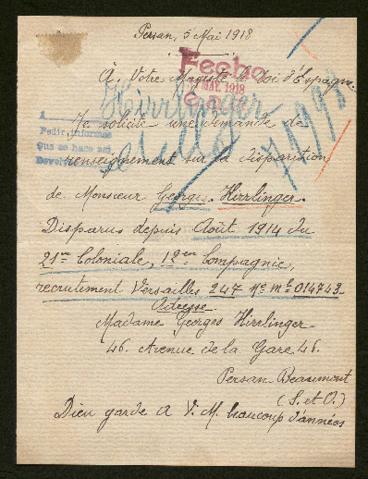 Persan, 5 Mai 1918
À Votre Majesté le Roi d'Espagne.
Fecho
MAY. 1918
Je sollicite une demande de
Hirrlinger
A
Pedir informes
Que se hace así
renseignement sur la disparition
de Monsieur Georges Hirrlinger.
Disparus depuis Août 1914 du
21me Coloniale, 12em Compagnie,
recrutement Versailles 247 No mle 014743
Adresse
Madame Georges Hirrlinger
46. Avenue de la Gare 46.
Persan-Beaumont
(S. et O.)
Dieu garde A V. M. beaucoup d'années